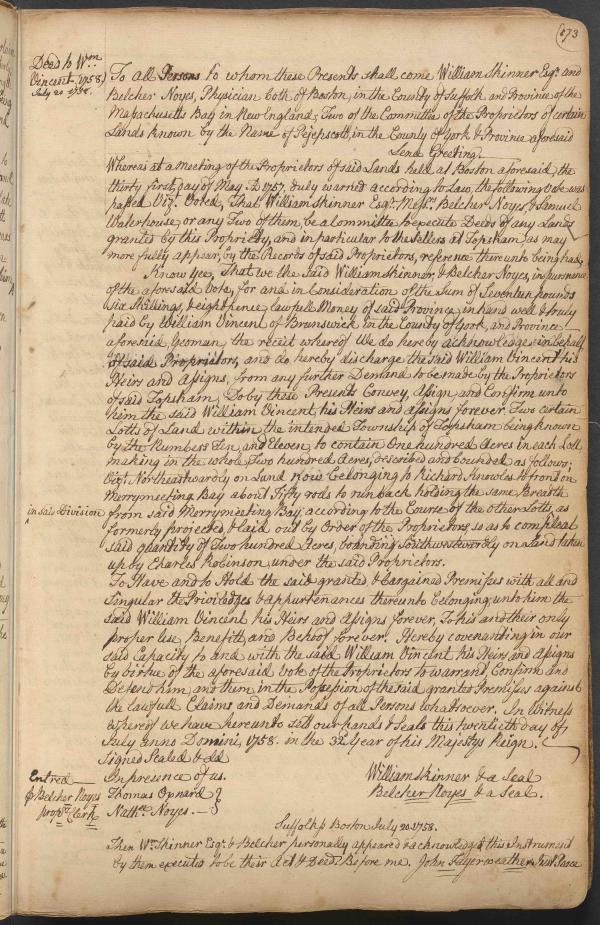 173
Deed to Wm
Vincent. 1758
July 20 1758.
To all Persons to whom these Presents shall come William Skinner Esqr. and
Belcher Noyes, Physician both of Boston, in the County of Suffolk and Province of the
Massachusetts Bay in New England, Two of the Committee of the Proprietors of certain
Lands known by the Name of Pejepscott, in the County of York & Province aforesaid
Send Greeting.
Whereas at a Meeting of the Proprietors of said Lands held at Boston aforesaid, the
thirty first day of May AD 1757, duly warned according to Law, the following Vote was
passed Vizt. Voted, That William Skinner Esqr. Messrs. Belcher Noyes, & Samuel
Waterhouse, or any Two of them, be a Committee to execute Deeds of any Lands
granted by this Propriety, and in particular to the Settlers at Topsham, as may
more fully appear, by the Records of said Proprietors, reference thereunto being had.
Know Yee, That we the Said William Skinner, & Belcher Noyes, in pursuance
of the aforesaid Vote, for and in Consideration of the Sum of Seventeen pounds
six Shillings, & eight pence, lawfull Money of said Province, in hand well & truly
paid by William Vincent of Brunswick in the County of York, and Province
aforesaid, Yeoman, the receit whereof We do hereby acknowledge in behalf
of said Proprietors, and do hereby discharge the said William Vincent his
Heirs and Assigns, from any further Demand to be made by the Proprietors
of said Topsham, Do by these Presents Convey, Assign, and Confirm unto
him the said William Vincent, his Heirs and assigns forever. Two certain
Lotts of Land within the intended Township of Topsham being known
by the Numbers Ten, and Eleven to contain One hundred Acres in each Lott
making in the whole Two hundred Acres, described and bounded as follows;
Vizt. Northeastwardly on Land now belonging to Richard Knowles to front on
Merrymeeting Bay about Fifty rods to run back holding the same Breadth
in said Division
from said Merrymeeting Bay, according to the Course of the other Lotts, as
formerly projected & laid out by Order of the Proprietors, so as to compleat
said quantity of Two hundred Acres, bounding Southwestwardly on Land taken
up by Charles Robinson under the said Proprietors.
To Have and to Hold the said granted & bargained Premisses with all and
Singular the Priviledges & appurtenances thereunto belonging unto him the
said William Vincent his Heirs and Assigns forever, To his and their only
proper Use, Benefitt, and Behoof forever. Hereby covenanting in our
said Capacity to and with the said William Vincent his Heirs and Assigns
by Virtue of the aforesaid Vote of the Proprietors to warrant, Confirm and
Defend him, and them in the Possession of the said granted Premisses against
the lawfull Claims and Demands of all Persons whatsoever. In Witness
whereof we have hereunto sett our hands & Seals this twentieth day of
July anno Domini, 1758. in the 32 Year of his Majestys Reign.
Signed Sealed & dd
In presence of us.
William Skinner & a Seal
Thomas
Belcher Noyes & a Seal.
Nathll. Noyes.
Entred
⅌ Belcher Noyes
Proprs. Clark
Suffolk ss Boston July 20 1758.
Then Wm. Skinner Esqr. & Belcher personally appeared & acknowledged this Instrument
by them executed to be their Act & Deed: Before me, John Fayerweather Just. Peace